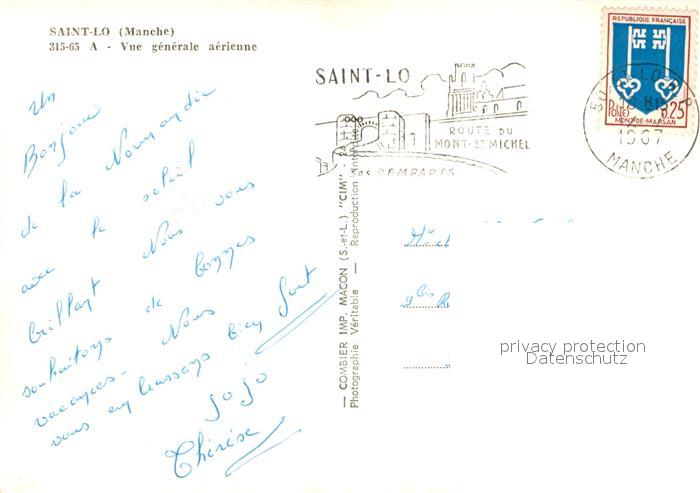 SAINT-LO (Manche)
315-65 A - Vue générale aérienne
Un
Bonjour
de la Normandie
avec le soleil
brillant Nous vous
souhaitons de bonnes
vacances - Nous
vous embrassons bien fort
Jojo
Thérèse
— COMBIER IMP. MACON (S.-et-L.) "CIM" -
Photographie Véritable — Reproduction
SAINT-LO
ROUTE DU
MONT-ST MICHEL
Ses REMPARTS
REPUBLIQUE FRANÇAISE
POSTES 0,25
MONT-DE-MARSAN
LO
1967
MANCHE
gbis R
privacy protection
Datenschutz